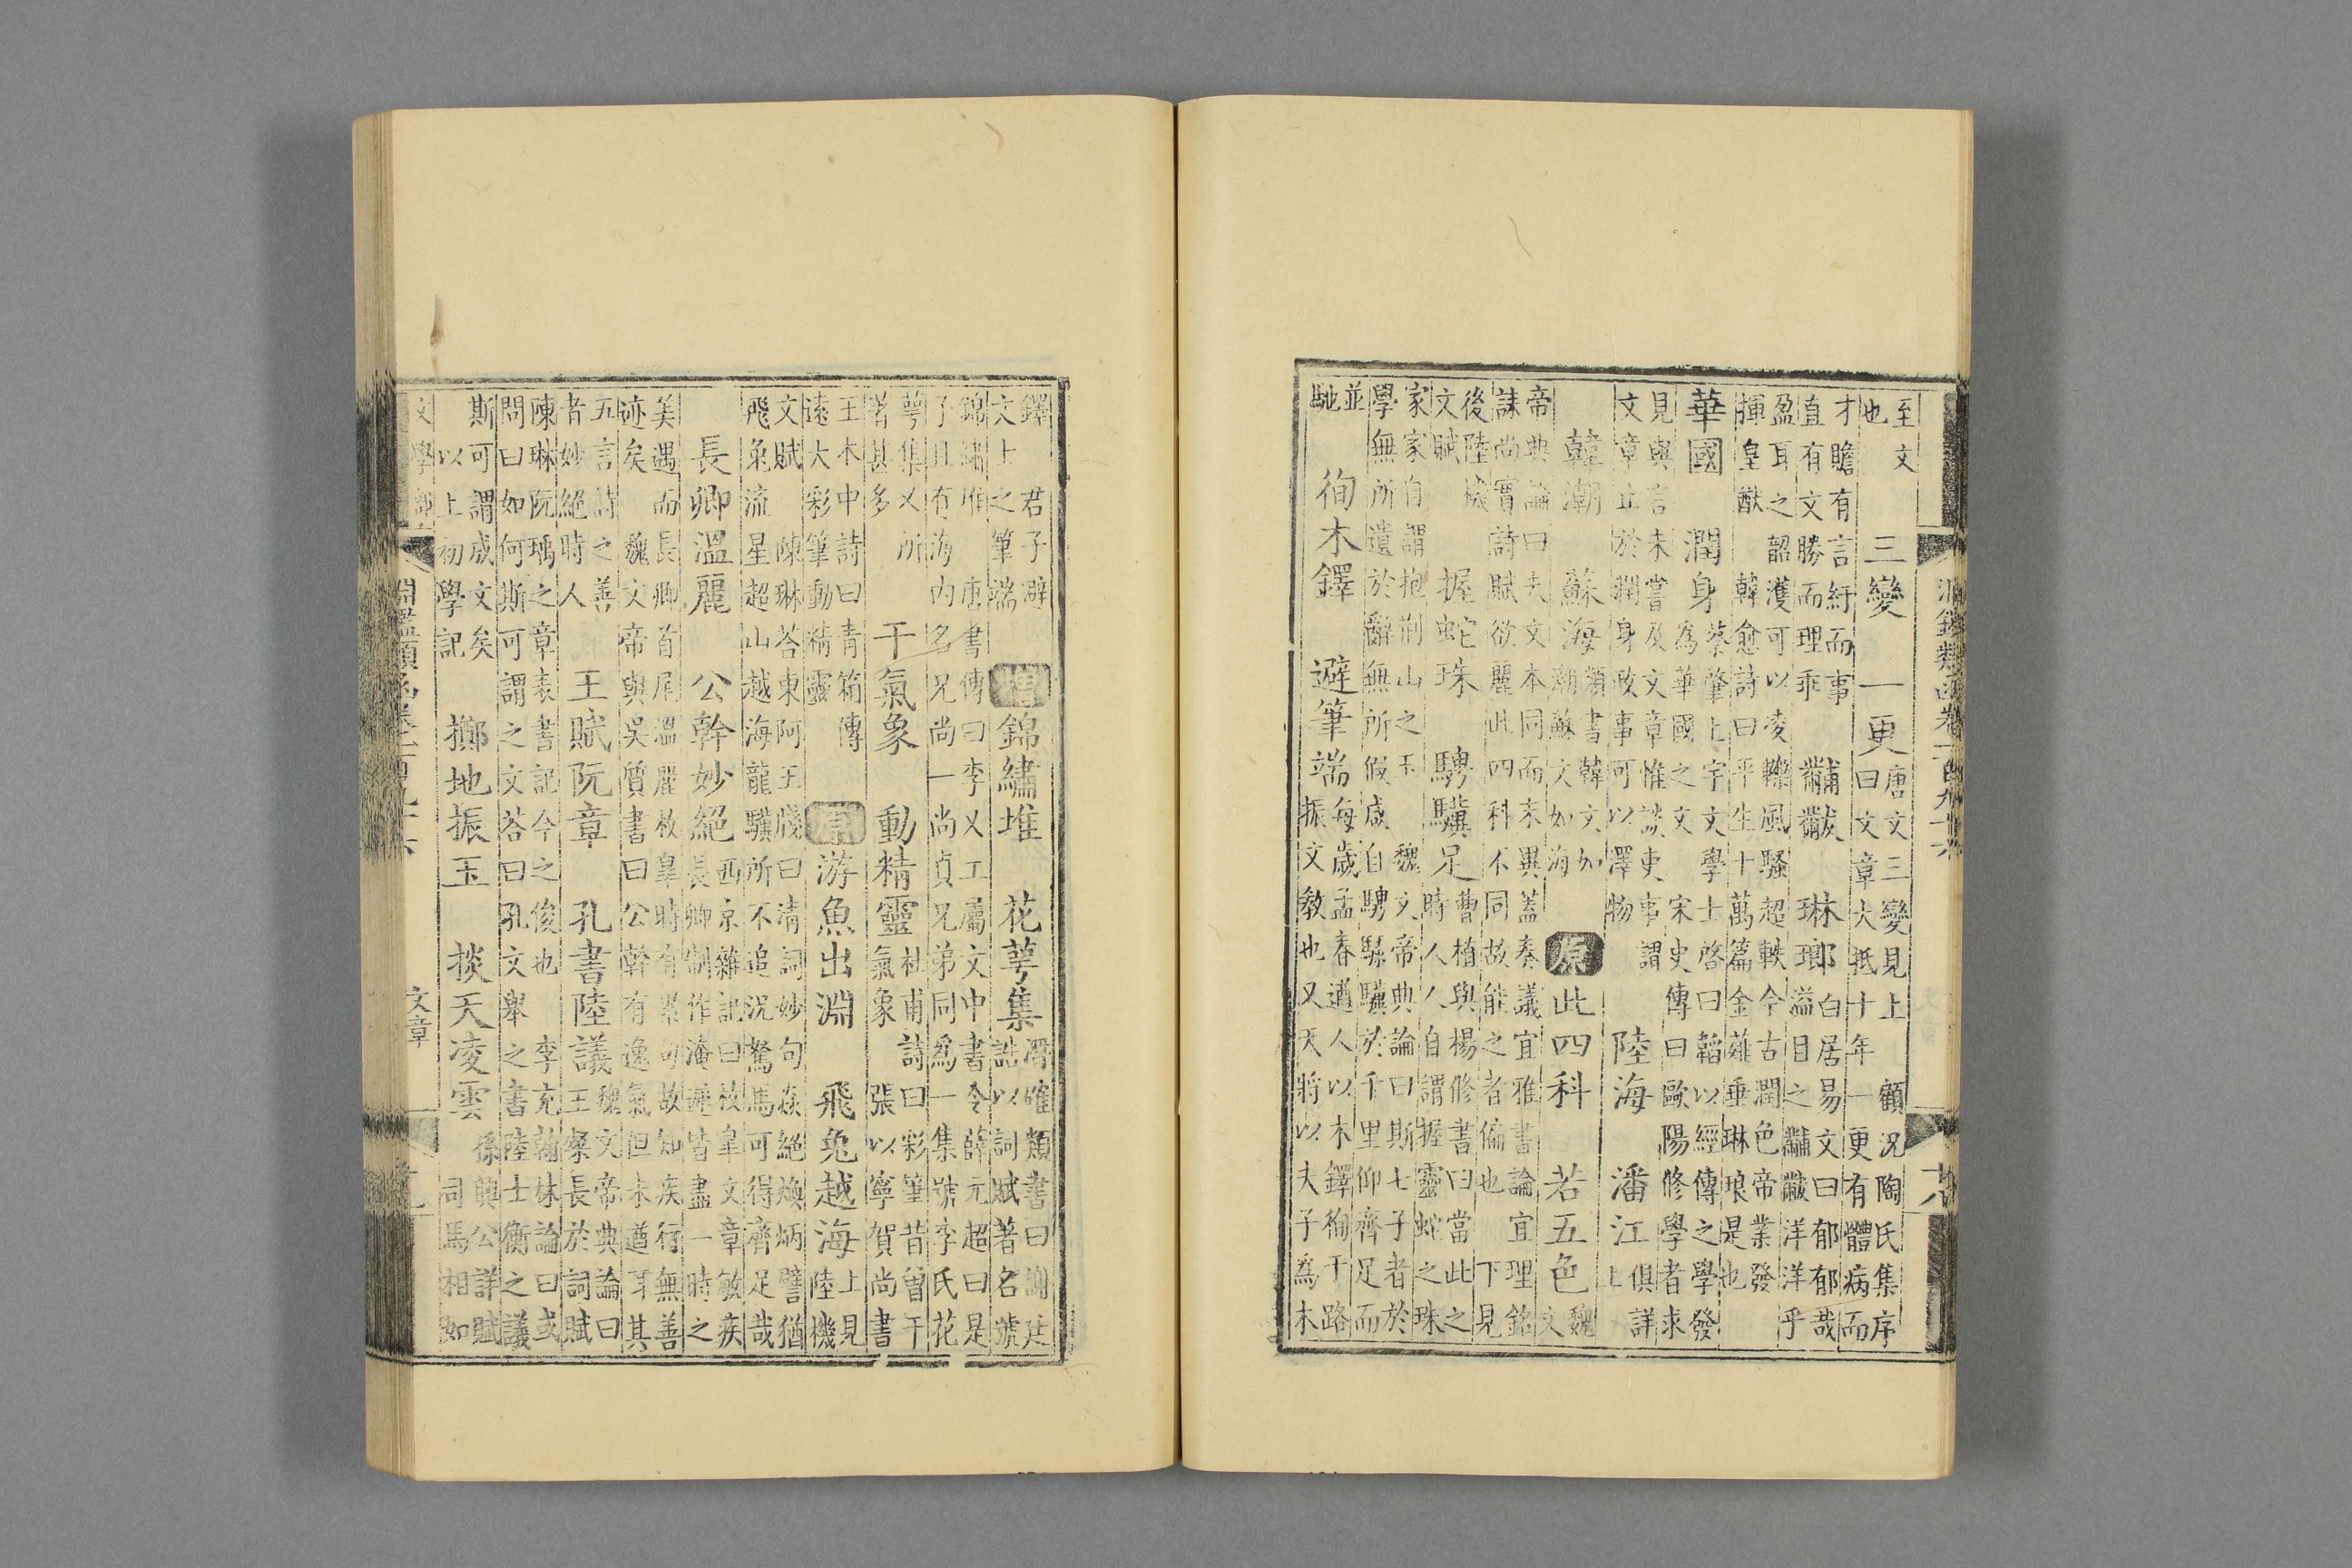 至文也　三變　一更唐文三變見上　顧況陶氏集序曰文章大抵十年一更有體病而
才贍有言紆而事直有文勝而理乖　黼黻　琳瑯白居易文曰郁郁哉溢目之黼黻洋洋乎
盈耳之韶濩可以凌轢風騷超軼今古潤色帝業發揮皇猷　韓愈詩曰平生十萬篇金薤垂琳琅是也
華國　潤身蔡肇上宇文學士啓曰韜以經傳之學發為華國之文　宋史傳曰歐陽修學者求
見與言未嘗及文章惟談吏事謂文章止於潤身政事可以澤物　陸海　潘江俱詳上
韓潮　蘇海類書韓文如潮蘇文如海　原此四科　若五色魏文
帝典論曰夫文本同而末異蓋奏議宜雅書論宜理銘誄尚實詩賦欲麗此四科不同故能之者偏也　下見
後陸機文賦　握蛇珠　騁驥足曹植與楊修書曰當此之時人人自謂握靈蛇之珠
家家自謂抱荆山之玉　魏文帝典論曰斯七子者於學無所遺於辭無所假咸自騁騄驥於千里仰齊足而
並馳　徇木鐸　避筆端每歲孟春遒人以木鐸徇于路振文教也又天將以夫子為木
鐸　君子避文士之筆端　增錦繡堆　花萼集潛確類書曰謝廷誥以詞賦著名號
錦繡堆　唐書傳曰李乂工屬文中書令薛元超曰是子且有海内名兄尚一尚貞兄弟同為一集號李氏花
萼集乂所著甚多　干氣象　動精靈杜甫詩曰彩筆昔曾干氣象　張以寧賀尚書
王本中詩曰青箱傳遠大彩筆動精靈　原游魚出淵　飛兔越海上見陸機
文賦　陳琳荅東阿王牋曰清詞妙句焱絶煥炳譬猶飛兔流星超山越海龍驥所不追況駑馬可得齊足哉
長卿溫麗　公幹妙絕西京雜記曰枚皐文章敏疾長卿制作淹遲皆盡一時之
美遇而長卿首尾溫麗枚皐時有累句故知疾行無善迹矣　魏文帝與吳質書曰公幹有逸氣但未遒耳其
五言詩之善者妙絕時人　王賦阮章　孔書陸議魏文帝典論曰王粲長於詞賦
陳琳阮瑀之章表書記今之俊也　李充翰林論曰或問曰如何斯可謂之文荅曰孔文舉之書陸士衡之議
斯可謂成文矣以上初學記　擲地振玉　掞天凌雲孫興公詳賦司馬相如
淵鑑類函卷一百九十六
文章